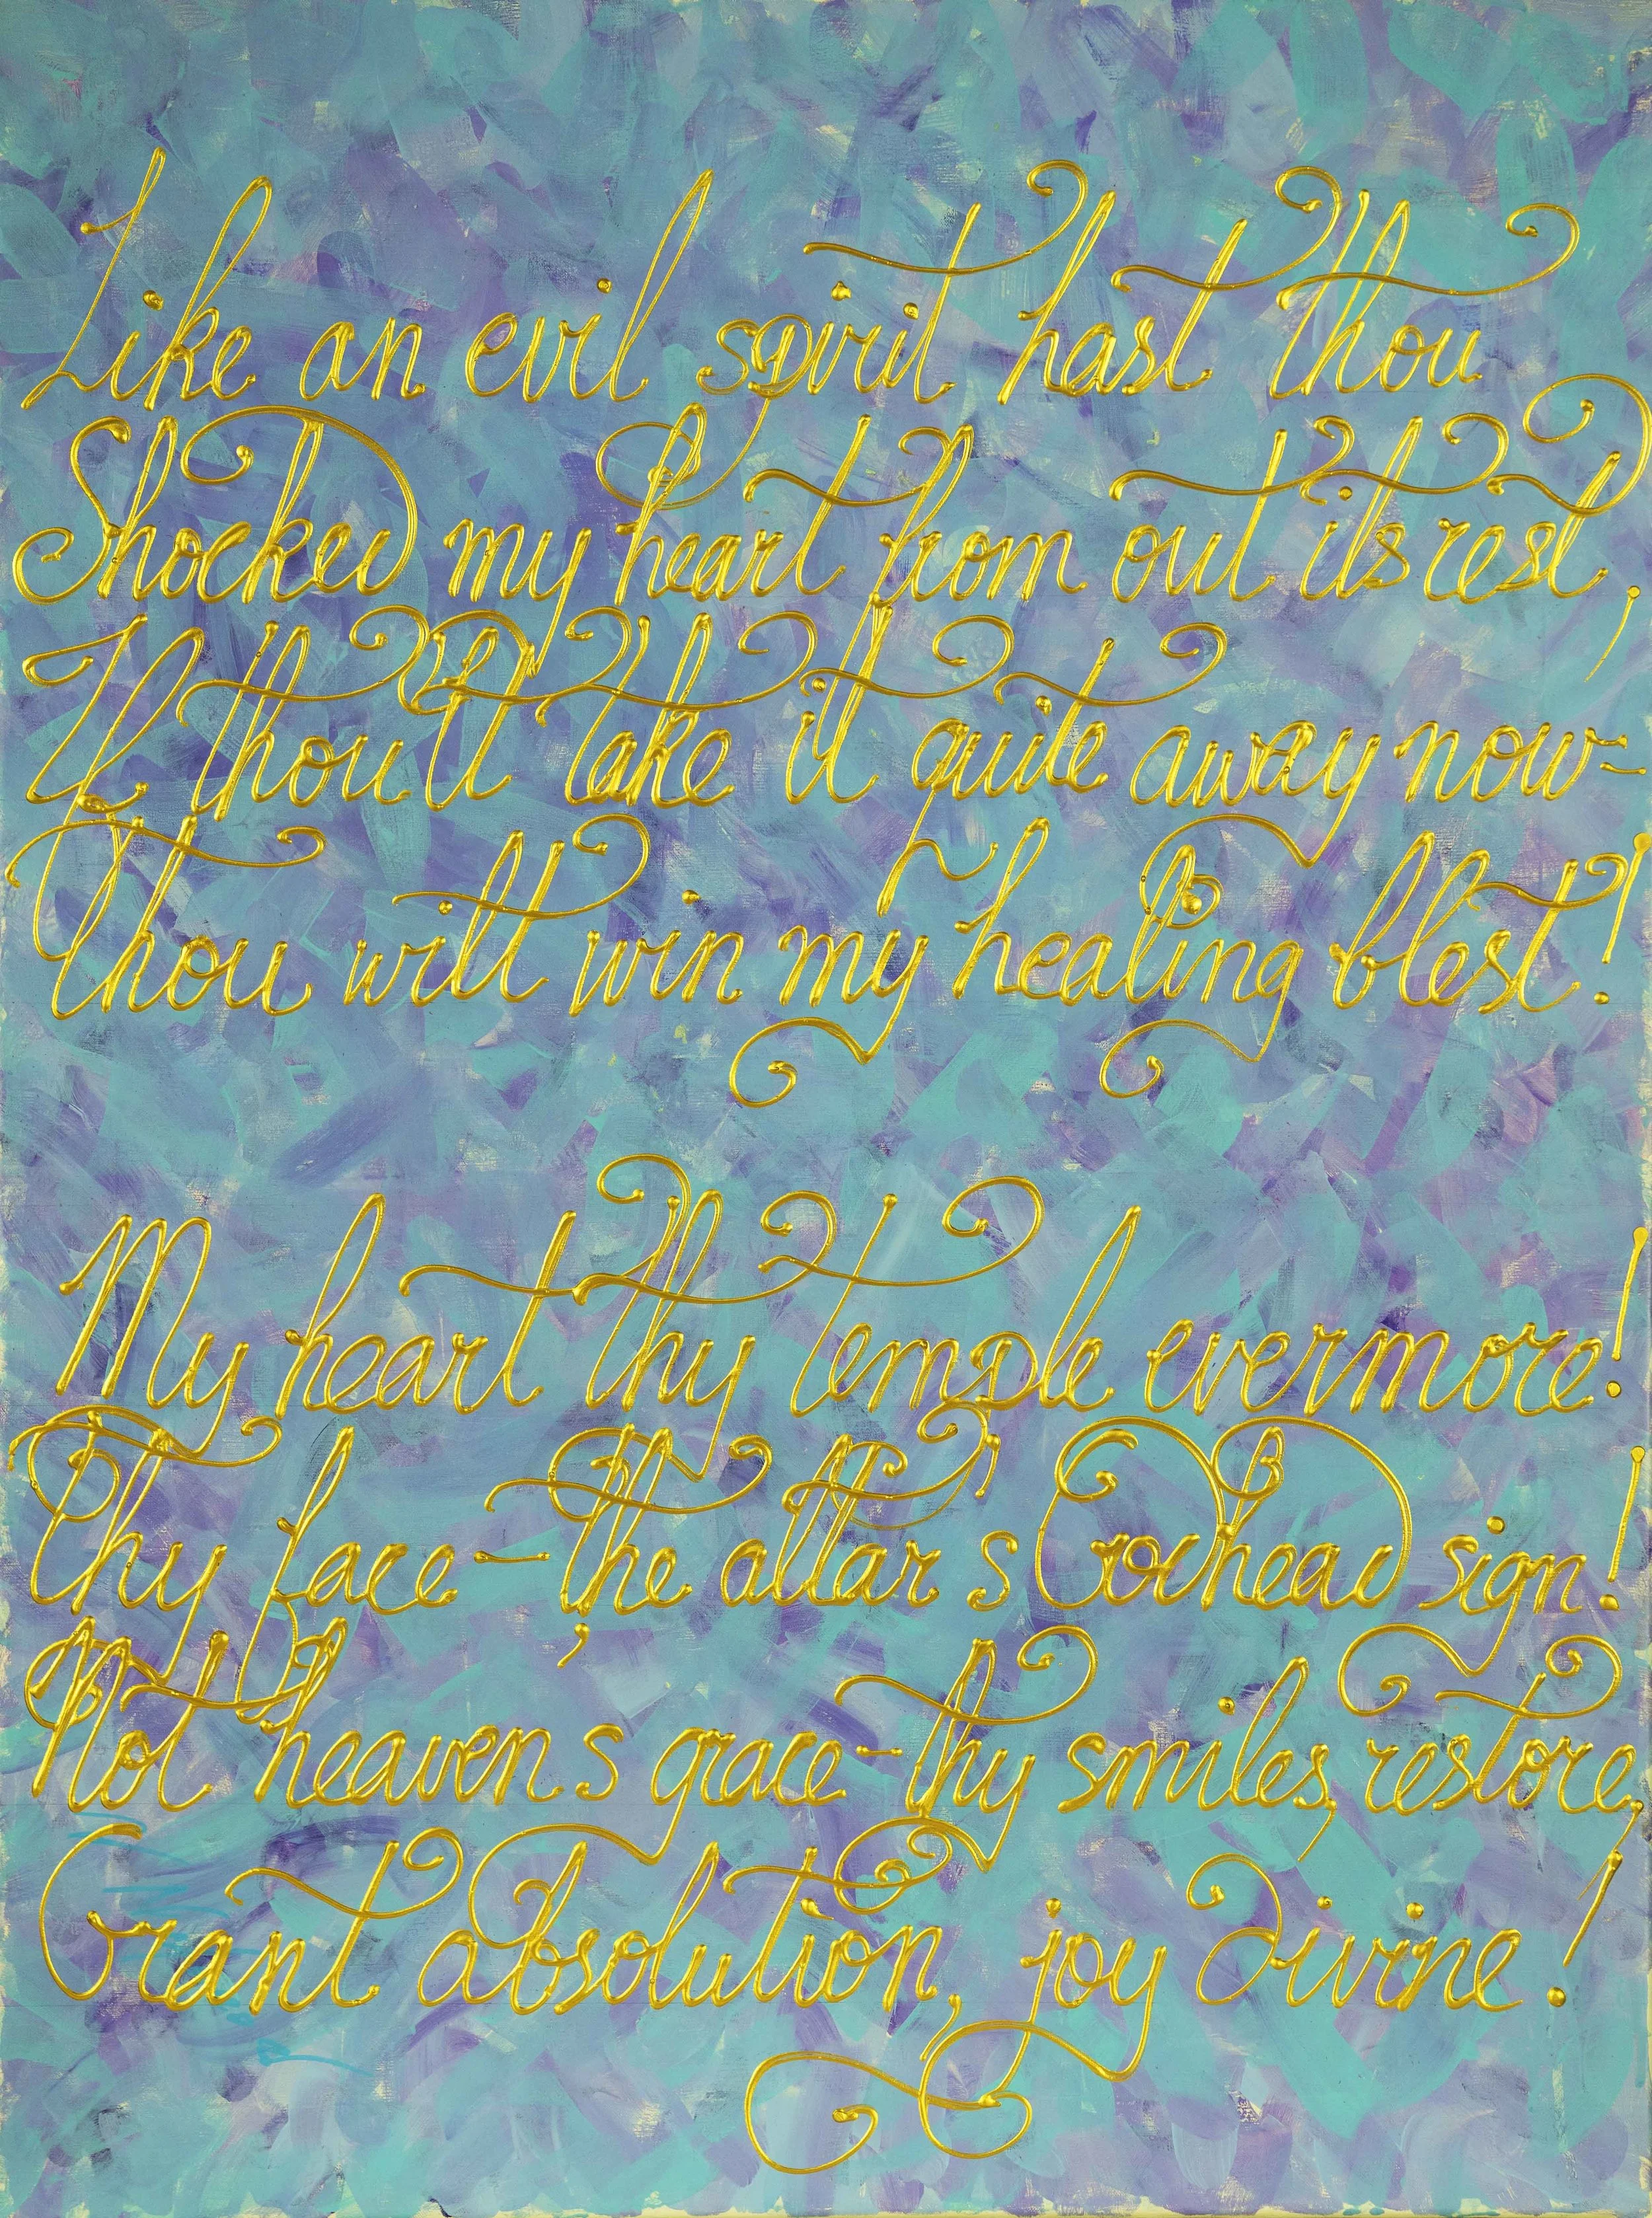 Like an evil spirit hast thou
Shocked my heart from out its rest,
If thou'lt take it quite away now-
Thou wilt win my healing blest!
My heart thy temple evermore!
Thy face - the altar's Godhead sign!
Not heaven's grace - thy smiles, restore,
Grant absolution, joy divine!